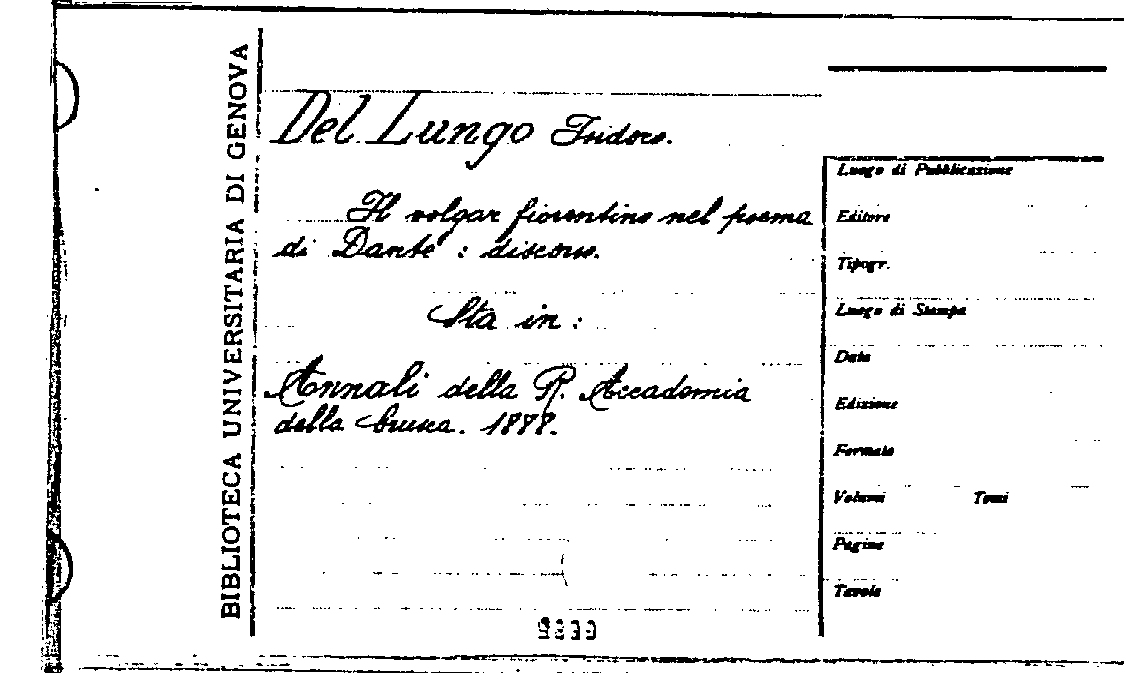 BIBLIOTECA UNIVERSITARIA DI GENOVA
Del Lungo Isidoro.
Il volgar fiorentino nel poema
di Dante : discorso.
Sta in :
Annali della R. Accademia
della Crusca. 1888.
Luogo di Pubblicazione
Editore
Tipogr.
Luogo di Stampa
Data
Edizione
Formato
Volumi Tomi
Pagine
Tavole